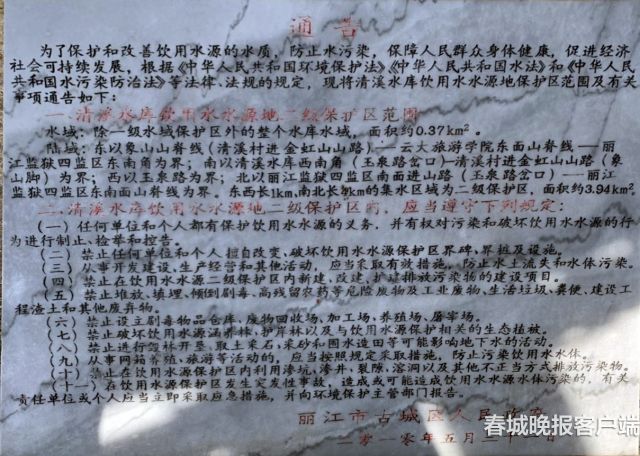 通告
为了保护和改善饮用水源的水质，防止水污染，保障人民群众身体健康，促进经济
社会可持续发展，根据《中华人民共和国环境保护法》《中华人民共和国水法》和《中华人民
共和国水污染防治法》等法律、法规的规定，现将清溪水库饮用水水源地保护区范围及有关
事项通告如下：
一、清溪水库饮用水水源地二级保护区范围
水域：除一级水域保护区外的整个水库水域，面积约0.37km²。
陆域：东以象山山脊线（清溪村进金虹山山路）——云大旅游学院东面山脊线——丽
江监狱四监区东南角为界；南以清溪水库西南角（玉泉路岔口——清溪村进金虹山山路（象
山脚）为界；西以玉泉路为界；北以丽江监狱四监区南面进山路（玉泉路岔口）——丽江
监狱四监区东南面山脊线为界。东西长1km,南北长4km的集水区域为二级保护区，面积约3.94km²。
二、清溪水库饮用水水源地二级保护区内，应当遵守下列规定：
（一）任何单位和个人都有保护饮用水水源的义务，并有权对污染和破坏饮用水水源的行
为进行制止、检举和控告。
（二）禁止任何单位和个人擅自改变、破坏饮用水水源保护区界碑、界桩及设施。
（三）从事开发建设、生产经营和其他活动，应当采取有效措施，防止水土流失和水体污染。
（四）禁止在饮用水水源二级保护区内新建、改建、扩建排放污染物的建设项目。
（五）禁止堆放、填埋、倾倒剧毒、高残留农药等危险废物及工业废物、生活垃圾、粪便、建设工
程渣土和其他废弃物。
（六）禁止设立剧毒物品仓库、废物回收场、加工场、养殖场、屠宰场。
（七）禁止破坏饮用水源涵养林、护岸林以及与饮用水源保护相关的生态植被。
（八）禁止进行毁林开垦、取土采石、采砂和围水造田等可能影响地下水的活动。
（九）从事网箱养殖、旅游等活动的，应当按照规定采取措施，防止污染饮用水水体。
（十）禁止在饮用水源保护区内利用渗坑、渗井、裂隙、溶洞以及其他不正当方式排放污染物。
（十一）在饮用水源保护区发生突发性事故，造成或可能造成饮用水水源水体污染的，有关
责任单位或个人应当立即采取应急措施，并向环境保护主管部门报告。
丽江市古城区人民政府
二零一零年五月二十日
春城晚报客户端